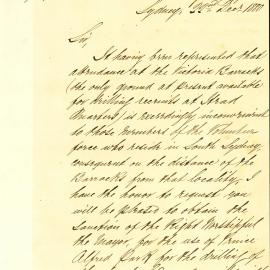 Sydney, 30th Decr. 1880
Sir,
It having been represented that
attendance at the Victoria Barracks
(the only ground at present available
for drilling recruits at Head
Quarters) is exceedingly inconvenient
to those members of the Volunteer
force who reside in South Sydney
consequent on the distance of the
Barracks from that locality, I
have the honor to request you
will be pleased to obtain the
sanction of the Right Worshipful
the Mayor, for the use of Prince
Alfred Park for the drilling of